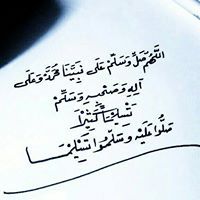 اللَّهُمَّ صَلِّ وَسَلِّمْ عَلَى نَبِيِّنَا مُحَمَّدْ وَعَلَى
آلِهِ وَصَحْبِهِ وَسَلِّمْ
تَسْلِيمًا كَثِيْرًا
صَلُّوا عَلَيْهِ وَسَلِّمُوا تَسْلِيْمَا